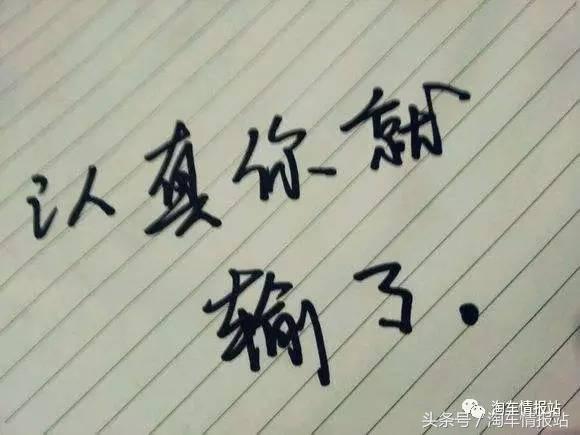 认真你就
输了.
淘车情报站
头条号/淘车情报站